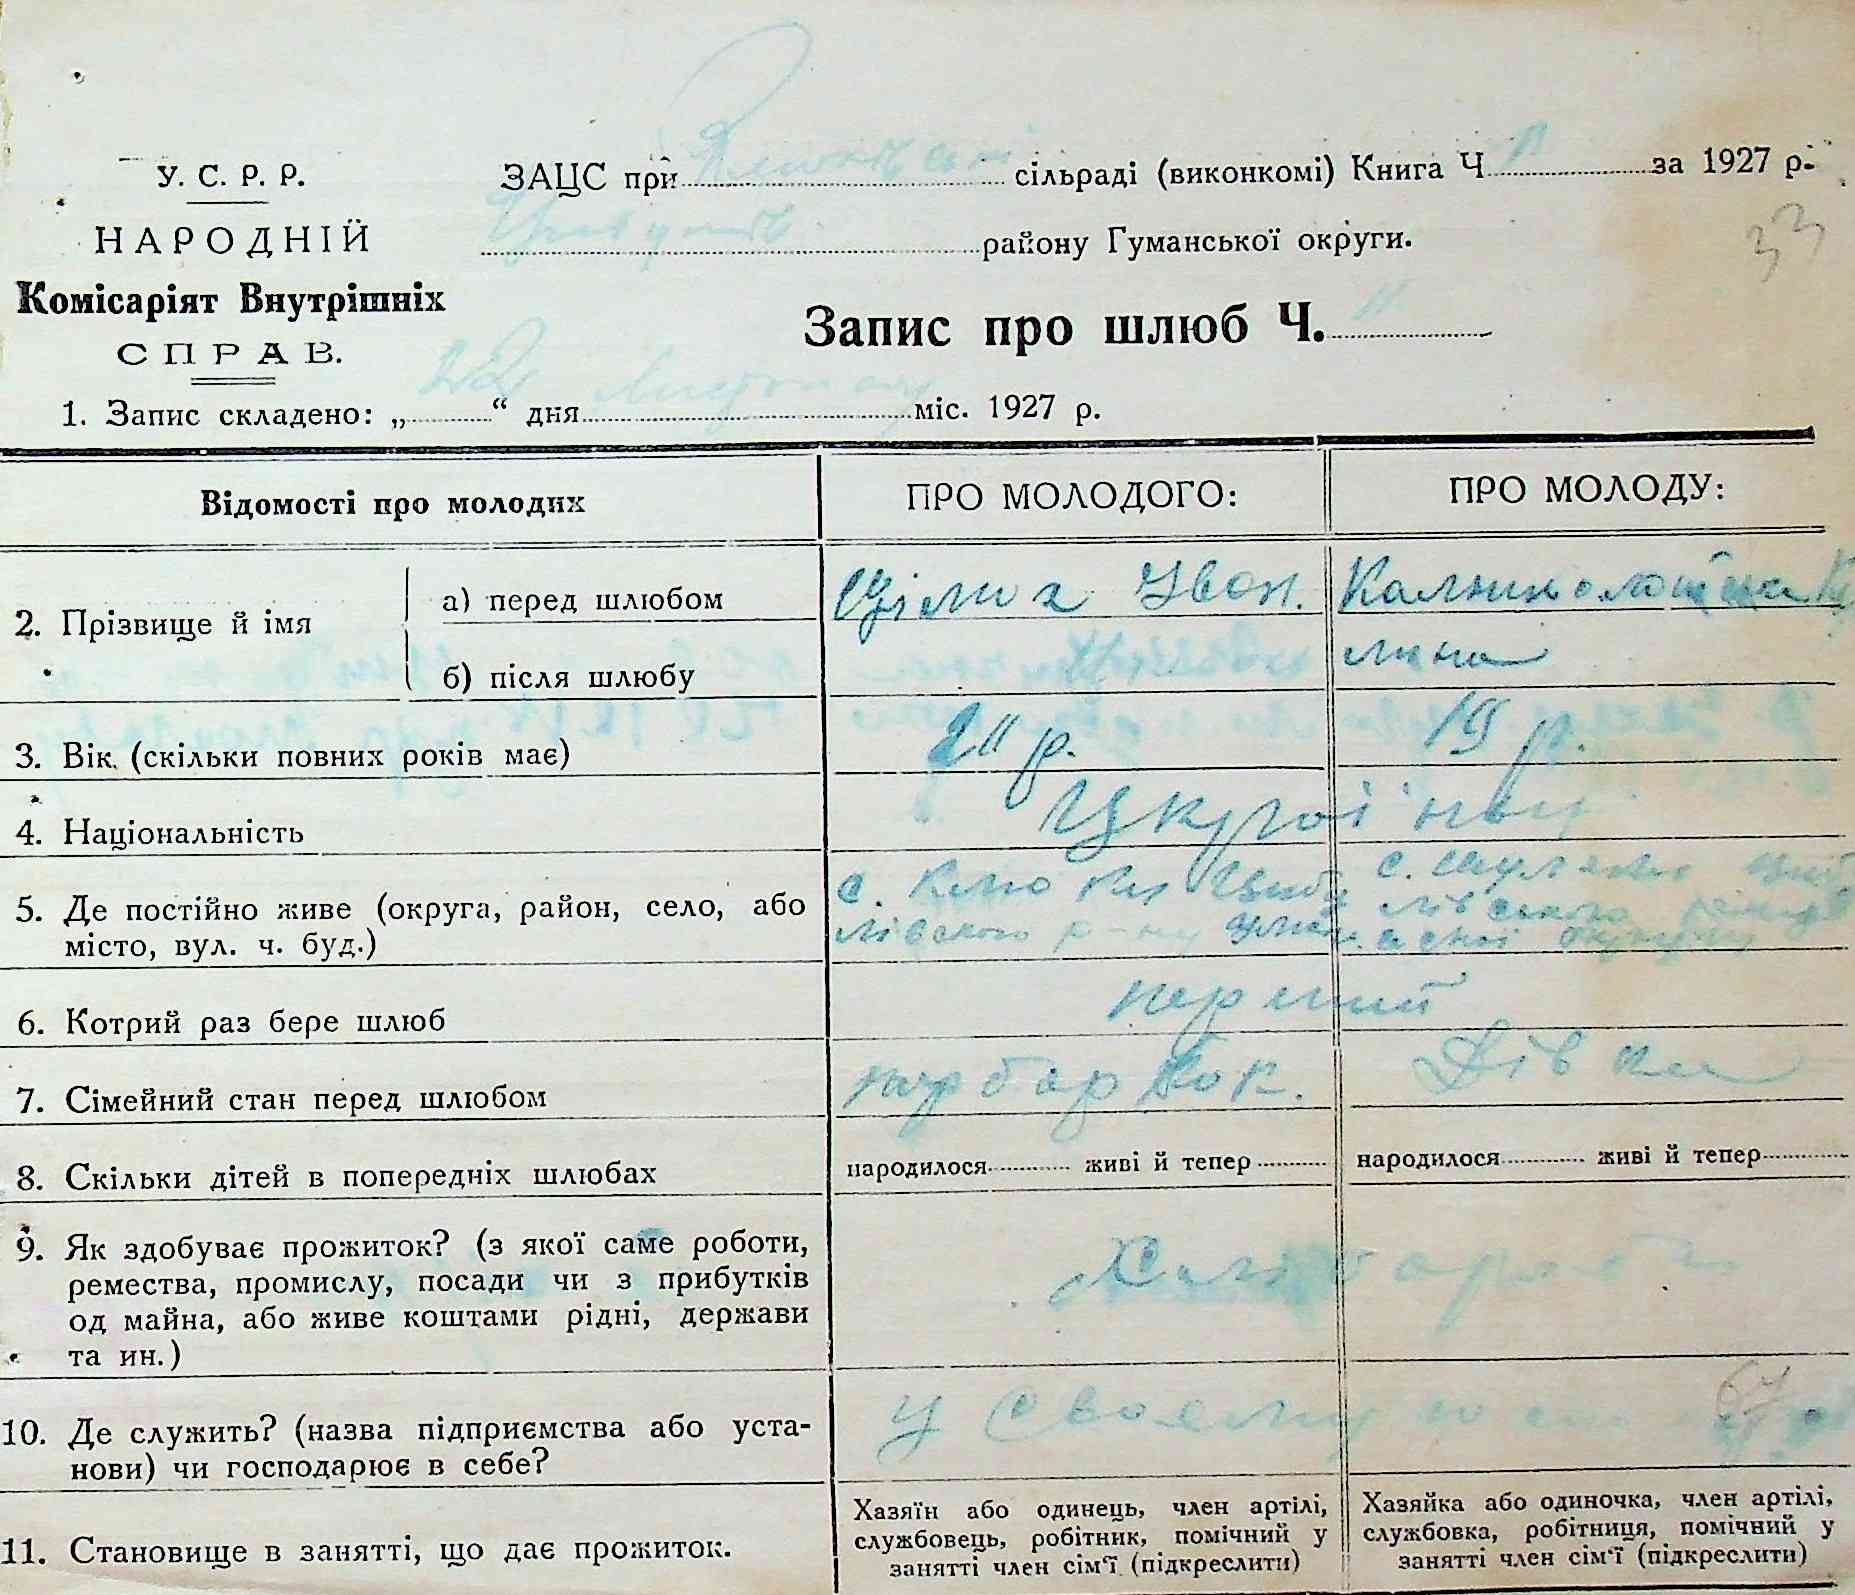 У. С. Р. Р.
НАРОДНІЙ
Комісаріят Внутрішніх
СПРАВ.
ЗАЦС при сільраді (виконкомі) Книга Ч за 1927 р.
району Гуманської округи.
33
Запис про шлюб Ч. 11
1. Запис складено: „22“ дня Листопаду міс. 1927 р.
Відомості про молодих
ПРО МОЛОДОГО:
ПРО МОЛОДУ:
2. Прізвище й імя
а) перед шлюбом
б) після шлюбу
Іван.
3. Вік (скільки повних років має)
р.
19 р.
4. Національність
Україньці
5. Де постійно живе (округа, район, село, або
місто, вул. ч. буд.)
с. Клюки Цибу
лівського р-ну
с.
лівського району
округи
6. Котрий раз бере шлюб
перший
7. Сімейний стан перед шлюбом
парубок.
Дівка
8. Скільки дітей в попередніх шлюбах
народилося живі й тепер
народилося живі й тепер
9. Як здобуває прожиток? (з якої саме роботи,
ремества, промислу, посади чи з прибутків
од майна, або живе коштами рідні, держави
та ин.)
Хлібороби
10. Де служить? (назва підприємства або уста-
нови) чи господарює в себе?
у своєму
67
11. Становище в занятті, що дає прожиток.
Хазяїн або одинець, член артілі,
службовець, робітник, помічний у
занятті член сім'ї (підкреслити)
Хазяйка або одиночка, член артілі,
службовка, робітниця, помічний у
занятті член сім'ї (підкреслити)